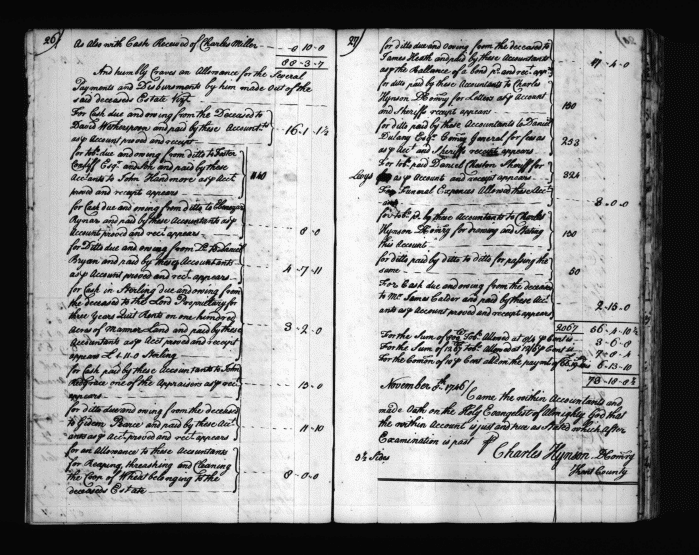 26
As Also with Cash Received of Charles Miller 0 10-0
88-3-7
And humbly Craves an Allowance for the Several
Payments and Disbursments by him made Out of the
said deceaseds Estate Vizt.
For Cash due and owing from the Deceased to
David Witherspoon and paid by these Accountts 16-1-1½
as p Acct proved and receipt
for tobo. due and owing from ditto to Foster
Cunliff Esqr and and paid by these
Acctants to John Handmore as p Acct 1140
proved and receipt appears
for Cash due and owing from ditto to Ebenezar
Rynar and paid by these Accountants as p
Account proved and rect. appears 8-0
for Ditto due and owing from Do. to Daniel
Bryan and paid by these Accountants
as p Account proved and rect. appears 4-7-11
for Cash in Sterling due and owing from
the deceased to the Lord Proprietary for
three Years Quit Rents on one hundred
Acres of Mannor Land and paid by these 3-2-0
Accountants as p Acct proved and receipt
appears £1.11.0 Sterling
for Cash paid by these Accountants to John
Redgrave one of the Appraisors as p rect. 15-0
appears
for ditto due and owing from the deceased
to Gideon Pearce and paid by these Acct-
ants as p Acct proved and rect appears 11-10
for an Allowance to these Accountants
for Reaping, threashing and Cleaning
the Crop of Wheat belonging to the 8-0-0
deceaseds Estate
27
for ditto due and Owing from the deceased to
James Heath and paid by these Accountants 17-4-0
as p the Ballance of a bond pd. and rect. appr
for ditto paid by these Accountants to Charles
Hynson D Comry for Letters as p Account 180
and Sheriffs receipt appears
for ditto paid by these Accountants to Daniel
Dulany Esqr Comry General for fees as 253
as p Acct and Sheriffs receipt appears
For tobo. paid Daniel Cheston Sheriff for
as p Account and receipt appears 324
For Funeral Expences Allowed these Acct-
ants 3-0-0
for tobo. pd. by these Accountants to Charles
Hynson D Comry for drawing and Stating 180
this Account
for ditto paid by ditto to ditto for passing the
same 50
For Cash due and owing from the deceased
to Mr James Calder and paid by these Acct-
ants as p Account proved and receipt appears 2-15-0
2067 66-4-10½
3-6-0
7-0-4
6-13-10
73-10-0½
November 8th 1746 / Came the within Accountants and
made Oath on the Holy Evangelist of Almighty God that
the within Account is just and true as stated which after
Examination is past
p Charles Hynson D Comry
Kent County
3½ Sides